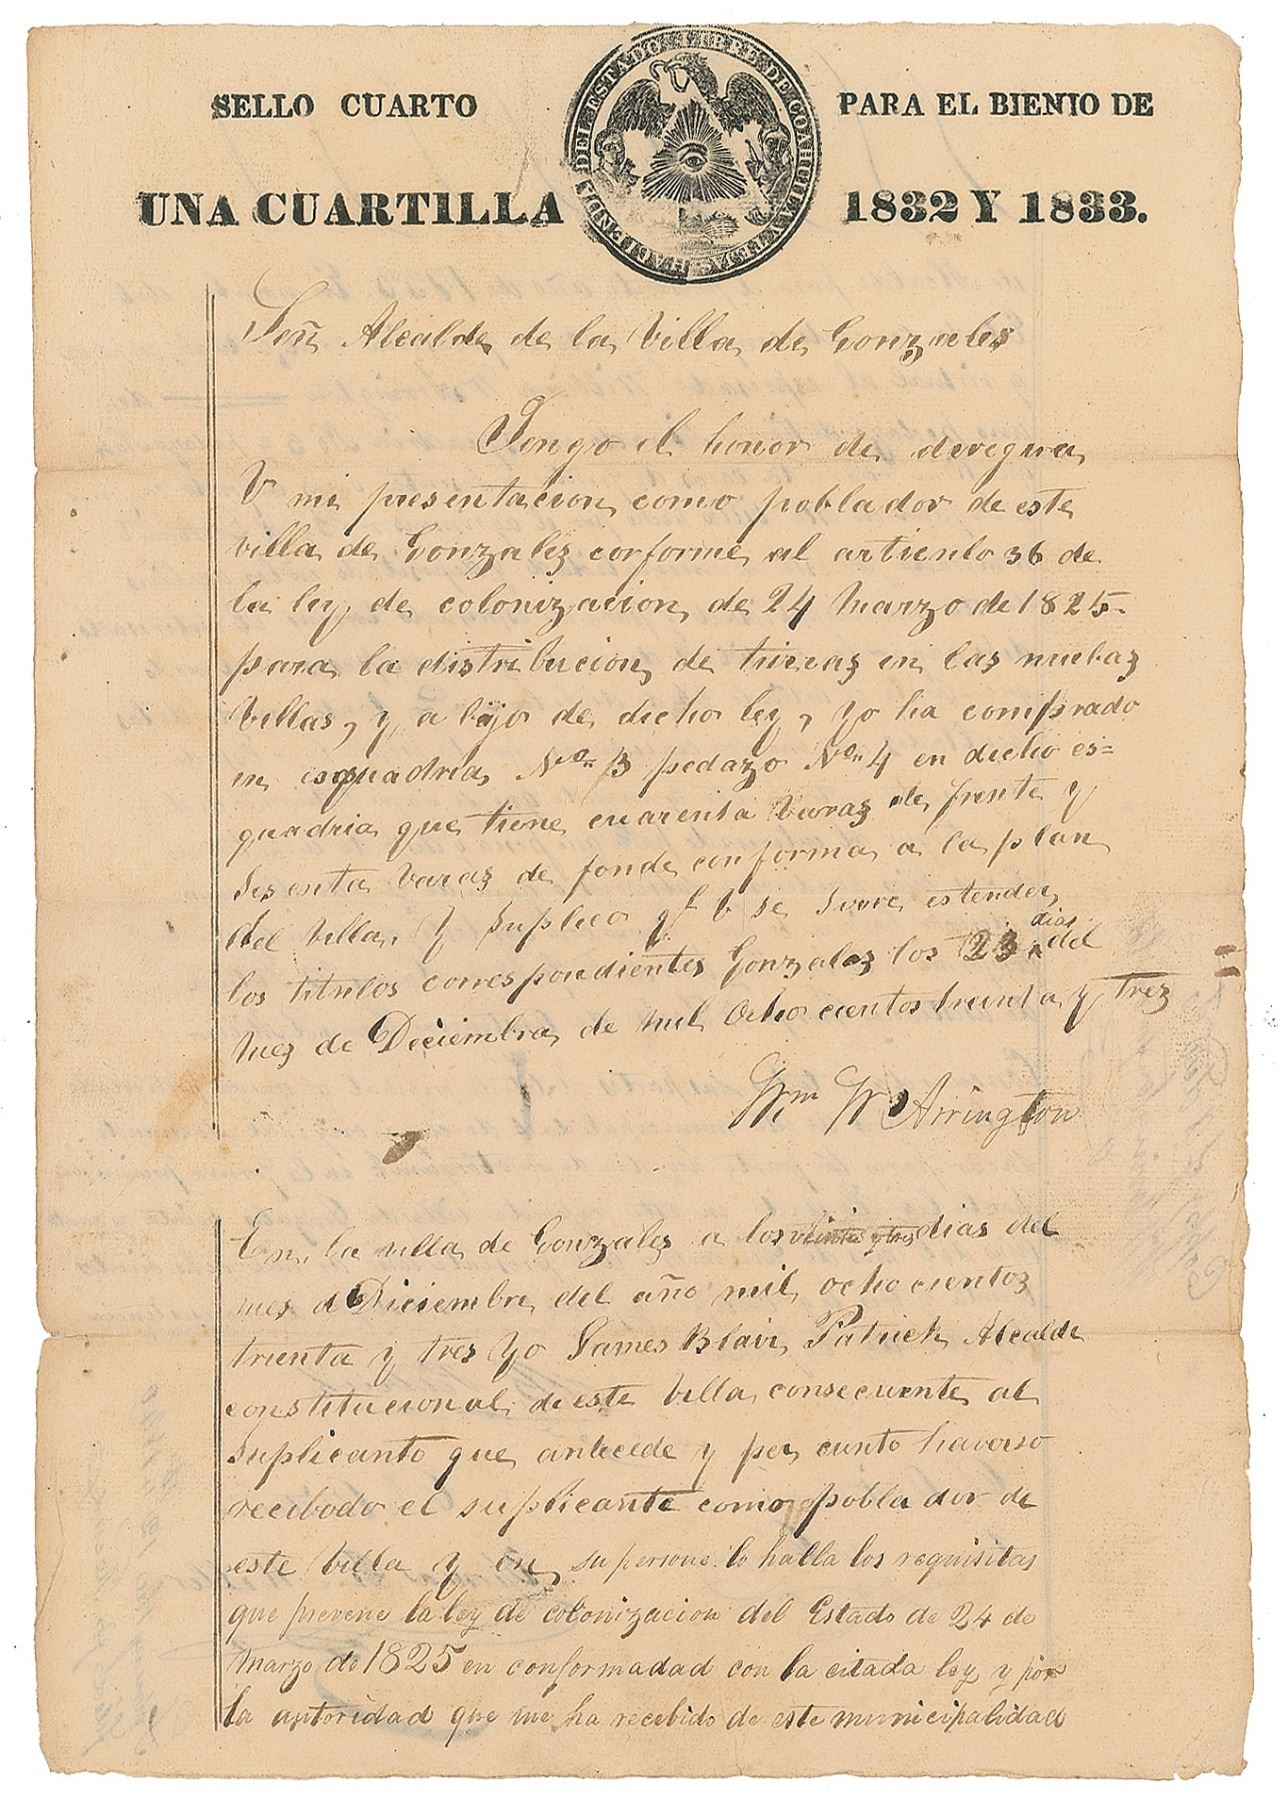 SELLO CUARTO PARA EL BIENIO DE
UNA CUARTILLA 1832 Y 1833.
HACIENDA DEL ESTADO LIBRE DE COAHUILA Y TEJAS
Señr Alcalde de la Villa de Gonzales
Tengo el honor de
V mi presentacion como poblador de este
villa de Gonzalez conforme al articulo 36 de
la ley de colonizacion de 24 Marzo de 1825
para la distribucion de tierras en las nuebas
Villas, y a bajo de dicho ley, Yo ha comprado
en esquadria No. 3 pedazo No. 4 en dicho es=
quadria que tiene cuarenta Varas de frente y
sesenta Varas de fonde conforma a la plan
del Villa. Y suplico qe V se sirve estender
los titulos correspondientes Gonzales los 23 dias del
Mes de Deciembra de Mil Ocho cientos trunta y Trez
Wm W Arrington
En la villa de Gonzales a los veinte y tres dias del
mes d Diciembre del año mil ocho cientos
trienta y tres Yo James Blair Patrick Alcalde
constitucional de este Villa consecuente al
suplicanto que antecede y per cunto haverso
recibodo el suplicante como poblador de
este Villa y en su persone lo halla los requisitas
que prevene la ley de colonizacion del Estado de 24 de
Marzo de 1825 en conformadad con la citada ley y por
la autoridad que me ha recebido de este municipalidad